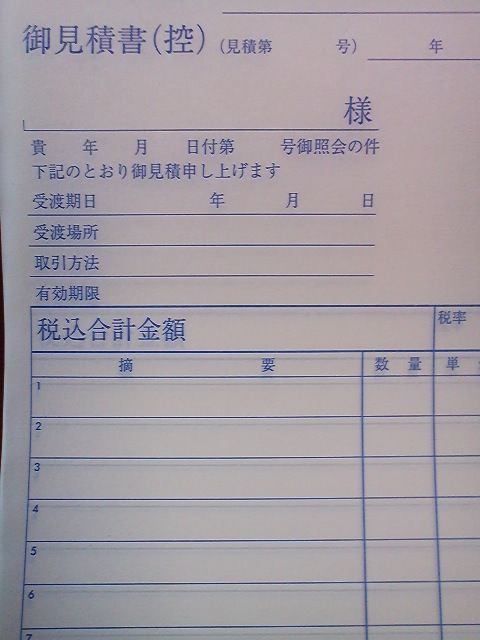 御見積書(控) (見積第 号) 年
様
貴 年 月 日付第 号御照会の件
下記のとおり御見積申し上げます
受渡期日 年 月 日
受渡場所
取引方法
有効期限
税込合計金額 税率
摘 要 数 量 単
1
2
3
4
5
6
7